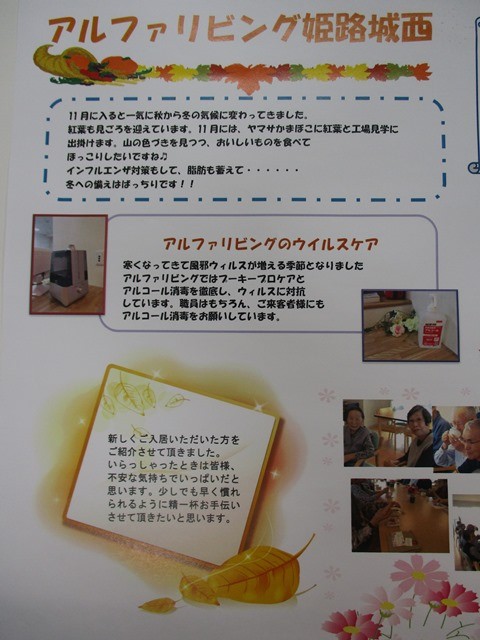 アルファリビング姫路城西
11月に入ると一気に秋から冬の気候に変わってきました。
紅葉も見ごろを迎えています。11月には、ヤマサかまぼこに紅葉と工場見学に
出掛けます。山の色づきを見つつ、おいしいものを食べて
ほっこりしたいですね♫
インフルエンザ対策もして、脂肪も蓄えて・・・・・・
冬への備えはばっちりです！！
アルファリビングのウイルスケア
寒くなってきて風邪ウィルスが増える季節となりました
アルファリビングではプーキープロケアと
アルコール消毒を徹底し、ウィルスに対抗
しています。職員はもちろん、ご来客者様にも
アルコール消毒をお願いしています。
新しくご入居いただいた方を
ご紹介させて頂きました。
いらっしゃったときは皆様、
不安な気持ちでいっぱいだと
思います。少しでも早く慣れ
られるように精一杯お手伝い
させて頂きたいと思います。